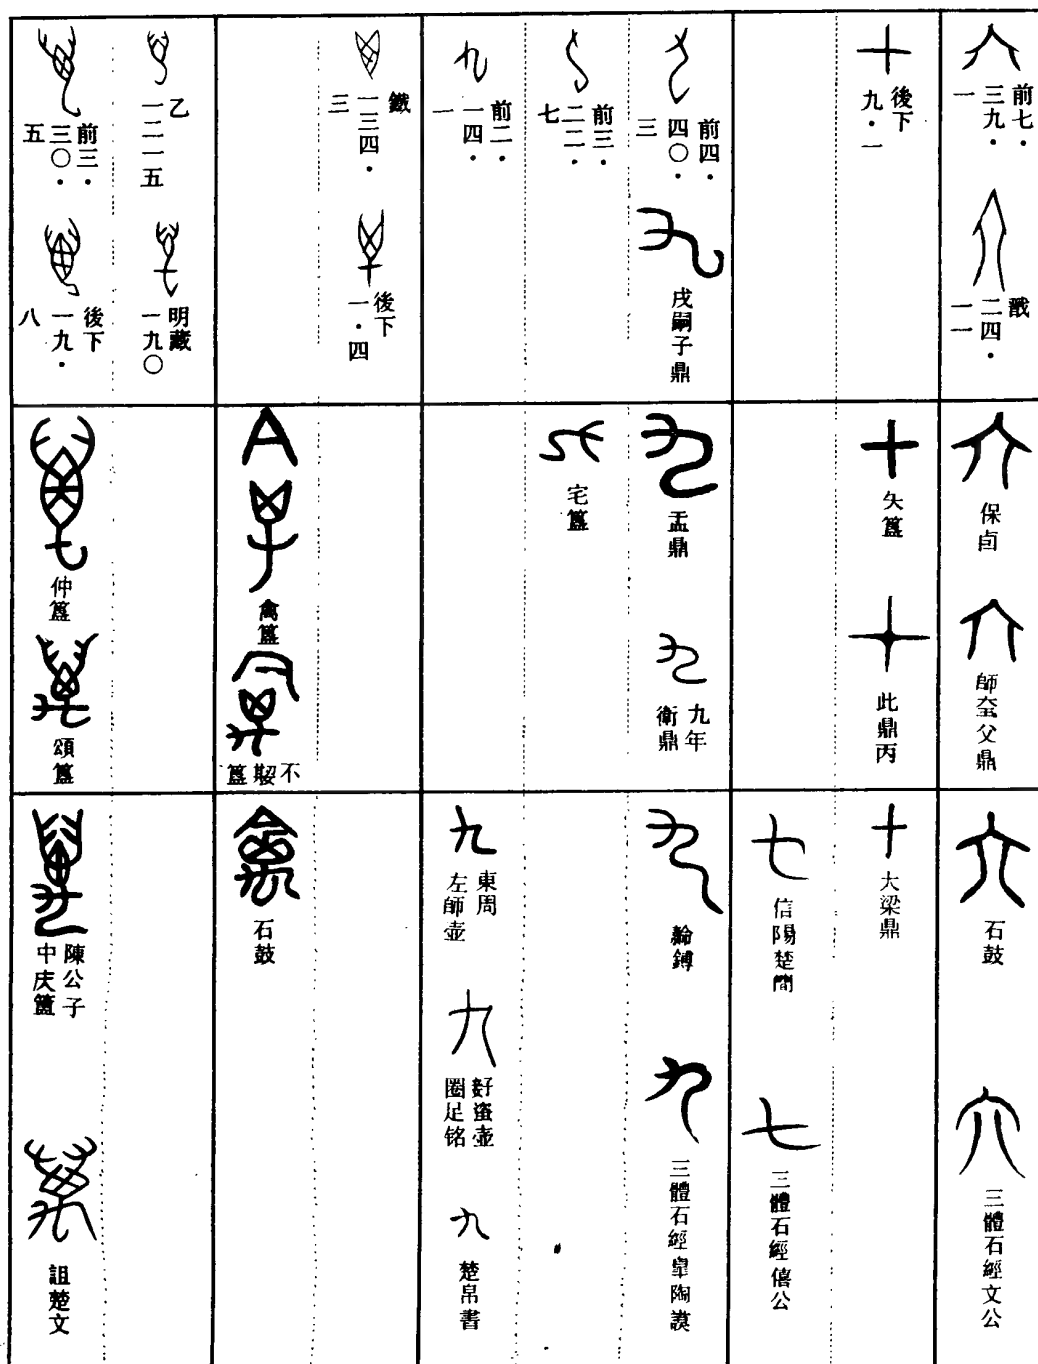 前七・
三九・
一
戩
二四・
一一
後下
九・一
前四・
四〇・
三
戌嗣子鼎
前三・
二二・
七
前二・
一四・
一
鐵
一三四・
三
後下
一・四
乙
一二一五
明藏
一九〇
前三・
三〇・
五
後下
一九・
八
保卣
師奎父鼎
夨簋
此鼎丙
盂鼎
九年
衛鼎
宅簋
禽簋
不𡢁簋
仲簋
頌簋
石鼓
三體石經文公
大梁鼎
信陽楚簡
三體石經僖公
鎛
三體石經皐陶謨
東周
左師壺
𧊒壺
圈足铭
楚帛書
石鼓
陳公子
中庆簠
詛楚文